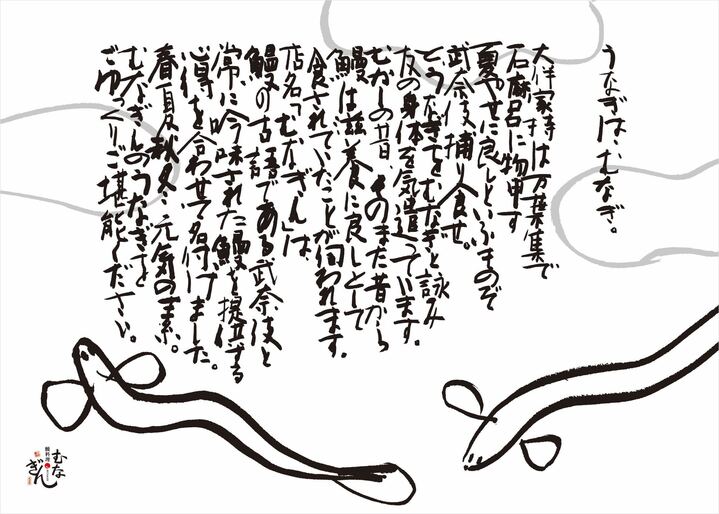 うなぎは、むなぎ。
大伴家持は万葉集で
石麻呂に物申す
夏やせに良しといふものぞ
武奈伎捕り食せ。
とうなぎをむなぎと詠み
友の身体を気遣っています。
むかしの昔、そのまた昔から
鰻は滋養に良しとして
食されていたことが伺われます。
店名「むなぎん」は
鰻の古語である武奈伎と
常に吟味された鰻を提供する
心得を合わせて名付けました。
春夏秋冬、元気の素。
むなぎんのうなぎを
ごゆっくりご堪能ください。
鰻料理
むなぎん